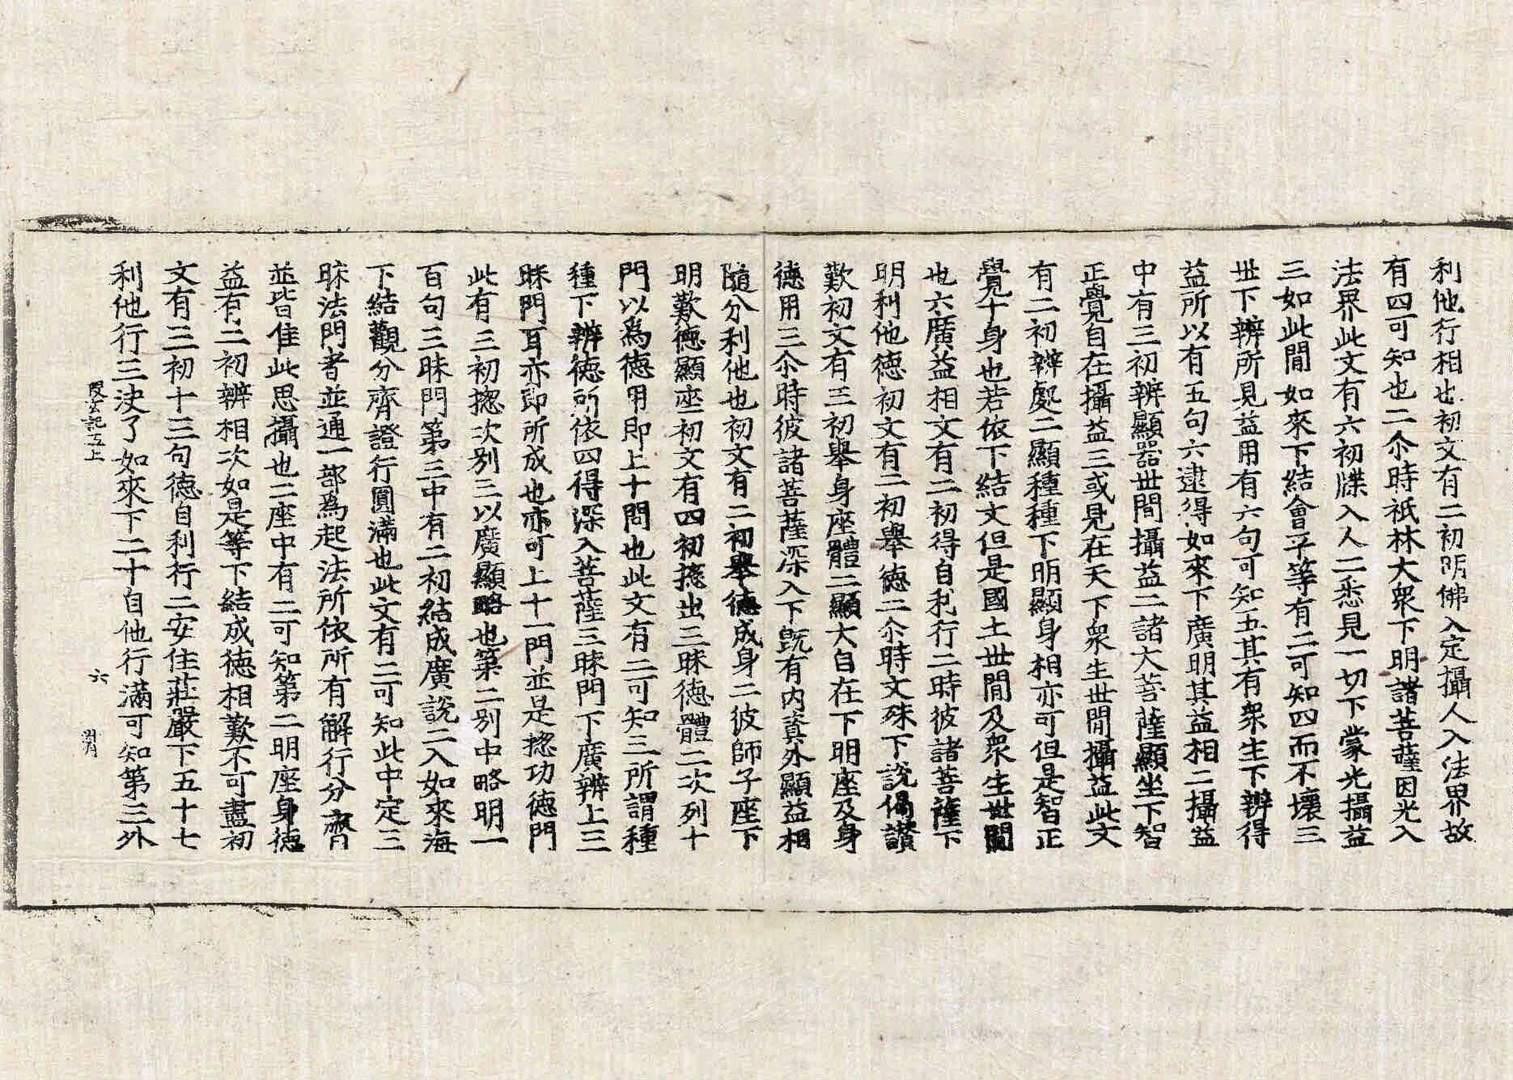 利他行相也初文有二初明佛入定攝人入法界故
有四可知也二尒時祇林大衆下明諸菩薩因光入
法界此文有六初牒入人二悉見一切下蒙光攝益
三如此間如來下結會平等有二可知四而不壞三
世下辨所見益用有六句可知五其有衆生下辨得
益所以有五句六逮得如來下廣明其益相二攝益
中有三初辨顯器世間攝益二諸大菩薩顯坐下智
正覺自在攝益三或見在天下衆生世間攝益此文
有二初辨處二顯種種下明顯身相亦可但是智正
覺十身也若依下結文但是國土世間及衆生世間
也六廣益相文有二初得自利行二時彼諸菩薩下
明利他德初文有二初舉德二尒時文殊下說偈讃
歎初文有三初舉身座體二顯大自在下明座及身
德用三尒時彼諸菩薩深入下既有内資外顯益相
隨分利他也初文有二初舉德成身二彼師子座下
明歎德顯座初文有四初揔出三昧德體二次列十
門以爲德用即上十問也此文有二可知三所謂種
種下辨德所依四得深入菩薩三昧門下廣辨上三
昧門耳亦即所成也亦可上十一門並是揔功德門
此有三初揔次別三以廣顯略也第二別中略明一
百句三昧門第三中有二初結成廣說二入如來海
下結觀分齊證行圓滿也此文有二可知此中定三
昧法門者並通一部爲起法所依所有解行分齊
並皆住此思攝也二座中有二可知第二明座身德
益有二初辨相次如是等下結成德相歎不可盡初
文有三初十三句德自利行二安住莊嚴下五十七
利他行三決了如來下二十自他行滿可知第三外
玄記五上 六